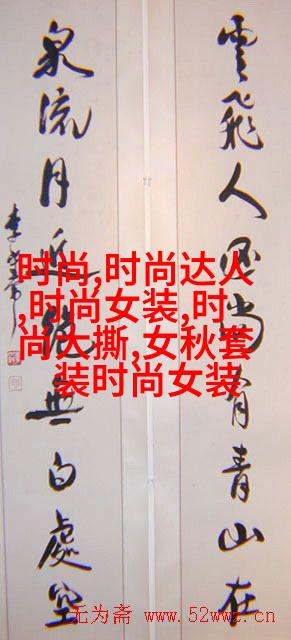 雲飛人尚青山在
泉流月無白處空
时尚,时尚达人
,时尚女装,时
尚大撕,女秋套
装时尚女装
无为斋 www.52wwz.cn